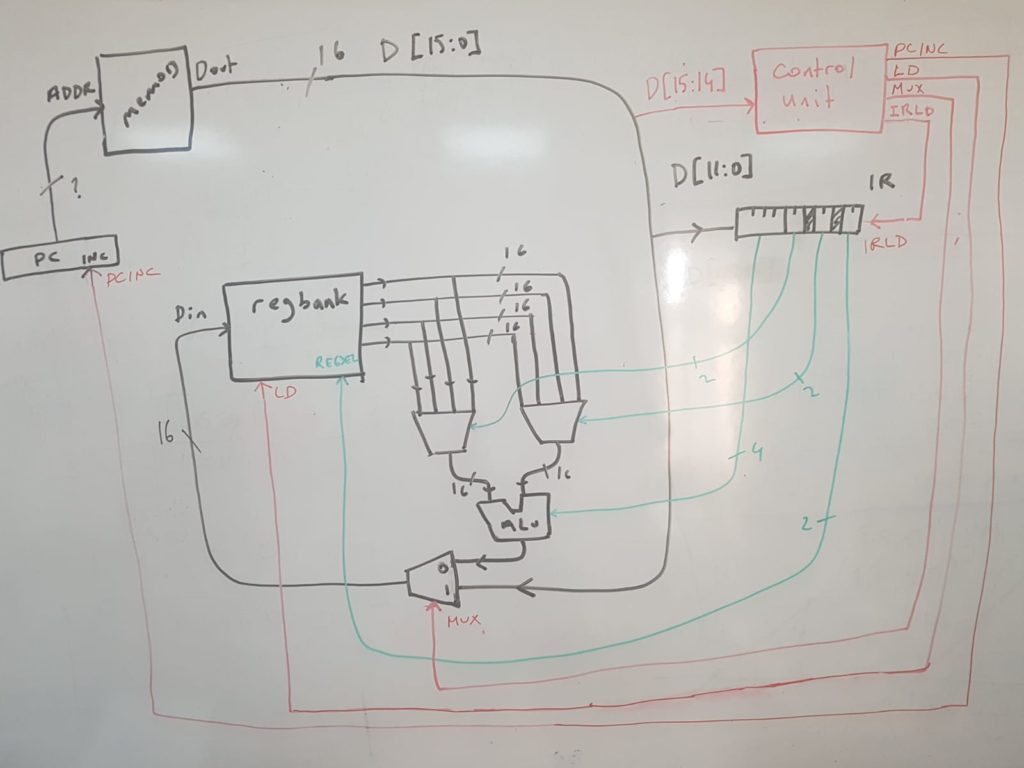 16 D [15:0]
ADDR
memory
Dout
D[15:14]
control
unit
PCINC
LD
MUX
IRLD
?
D[11:0]
IR
IRLD
PC INC
PCINC
Din
regbank
REGSEL
LD
16
16
16
16
2
2
16
4
16
16
ALU
2
0
1
MUX